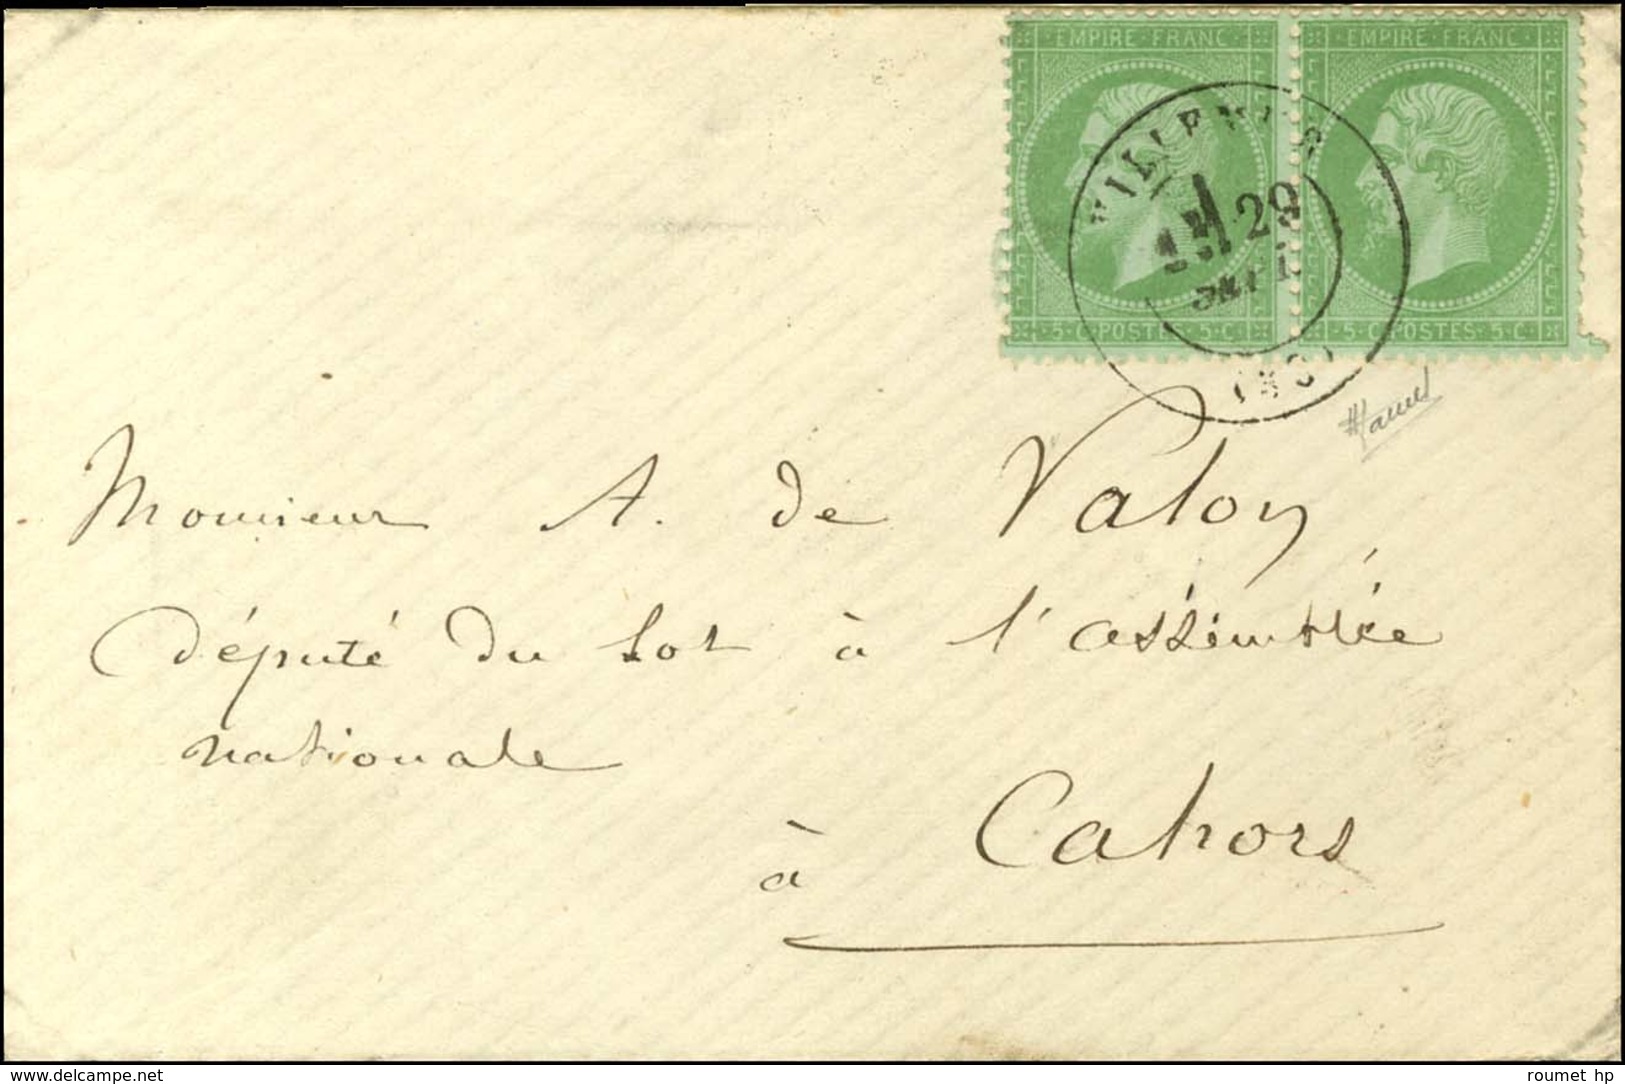 EMPIRE·FRANC EMPIRE·FRANC
29
5·C·POSTES·5·C· 5·C·POSTES·5·C·
Monsieur A. de Valon
député du Lot à l'assemblée
nationale
à Cahors
www.delcampe.net roumet hp